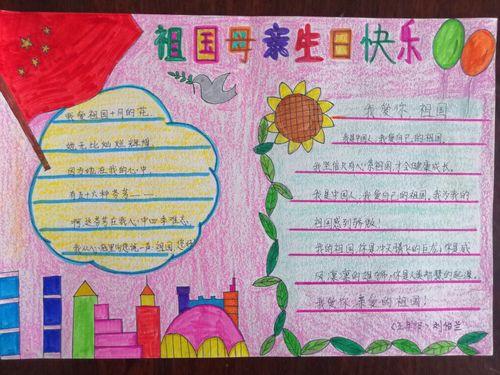 祖国母亲生日快乐
我爱祖国十月的花,
她无比灿烂辉煌。
因为她在我的心中
有五十六种芳香……
啊,这芳香在我心中四季难忘
我从心底里向您说一声:祖国,您好
我爱你 祖国
我是中国人,我爱自己的祖国。
我坚信只有心系祖国,才会健康成长。
我是中国人,我爱自己的祖国,我为我的
祖国感到骄傲!
我的祖国,你是冲天腾飞的巨龙,你是威
风凛凛的雄狮,你是人类智慧的起源。
我爱你 亲爱的祖国!
刘